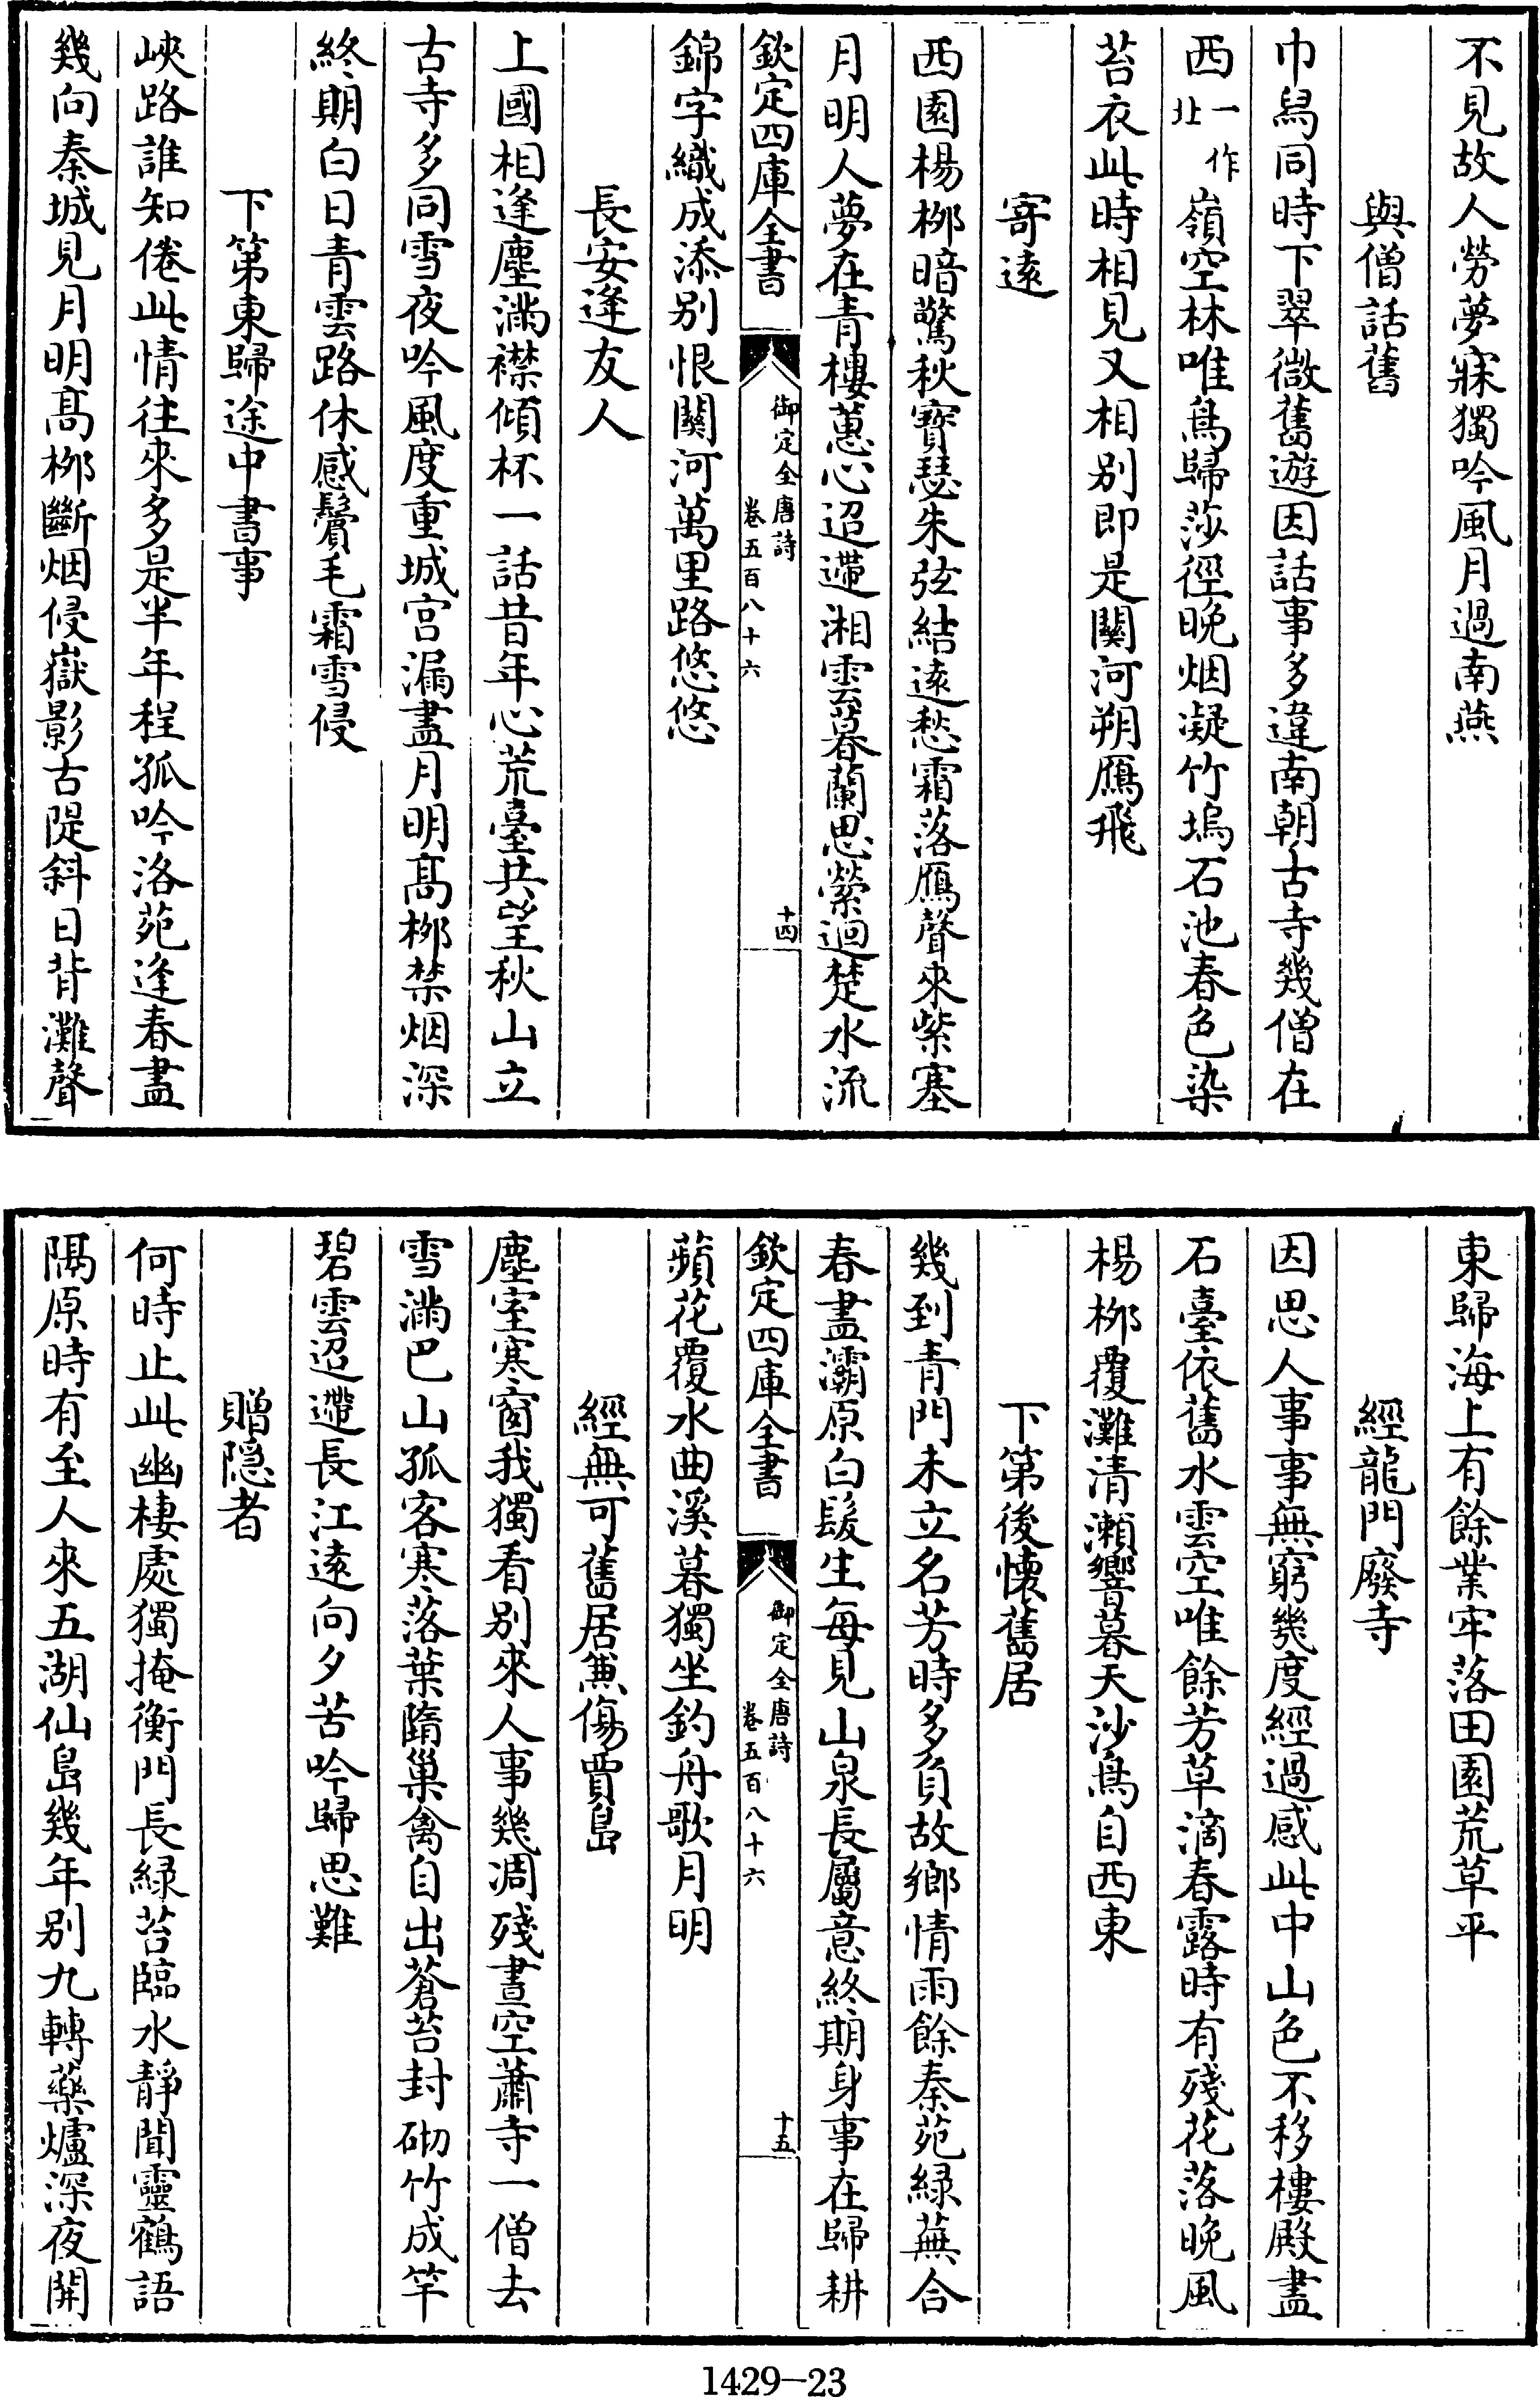 不見故人勞夢寐獨吟風月過南燕
與僧話舊
巾舄同時下翠微舊遊因話事多違南朝古寺幾僧在
西一作北嶺空林唯鳥歸莎徑晚烟凝竹塢石池春色染
苔衣此時相見又相别即是關河朔鴈飛
寄遠
西園楊栁暗驚秋寳瑟朱弦結遠愁霜落鴈聲來紫塞
月明人夢在青樓蕙心迢遰湘雲暮蘭思縈迴楚水流
欽定四庫全書
御定全唐詩
卷五百八十六
十四
錦字織成添别恨關河萬里路悠悠
長安逢友人
上國相逢塵滿襟傾杯一話昔年心荒臺共望秋山立
古寺多同雪夜吟風度重城宫漏盡月明髙栁禁烟深
終期白日青雲路休感鬢毛霜雪侵
下第東歸途中書事
峽路誰知倦此情往來多是半年程孤吟洛苑逢春盡
幾向秦城見月明髙栁斷烟侵嶽影古隄斜日背灘聲
東歸海上有餘業牢落田園荒草平
經龍門廢寺
因思人事事無窮幾度經過感此中山色不移樓殿盡
石臺依舊水雲空唯餘芳草滴春露時有殘花落晚風
楊栁覆灘清瀨響暮天沙鳥自西東
下第後懷舊居
幾到青門未立名芳時多負故鄉情雨餘秦苑緑蕪合
春盡灞原白髮生每見山泉長屬意終期身事在歸耕
欽定四庫全書
御定全唐詩
卷五百八十六
十五
蘋花覆水曲溪暮獨坐釣舟歌月明
經無可舊居兼傷賈島
塵室寒窗我獨看别來人事幾凋殘晝空蕭寺一僧去
雪滿巴山孤客寒落葉隋巢禽自出蒼苔封砌竹成竿
碧雲迢遰長江遠向夕苦吟歸思難
贈隠者
何時止此幽棲處獨掩衡門長緑苔臨水静聞靈鶴語
隅原時有至人來五湖仙島幾年别九轉藥爐深夜開
1429-23